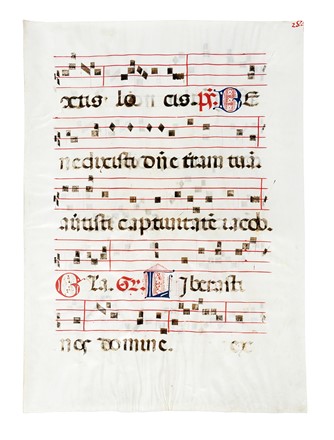 ctis lo cis. ps. BE
nedixisti dñe tram tuā
auisti captiuitatē iacob.
Gla. Gr. Liberasti
nos domine.